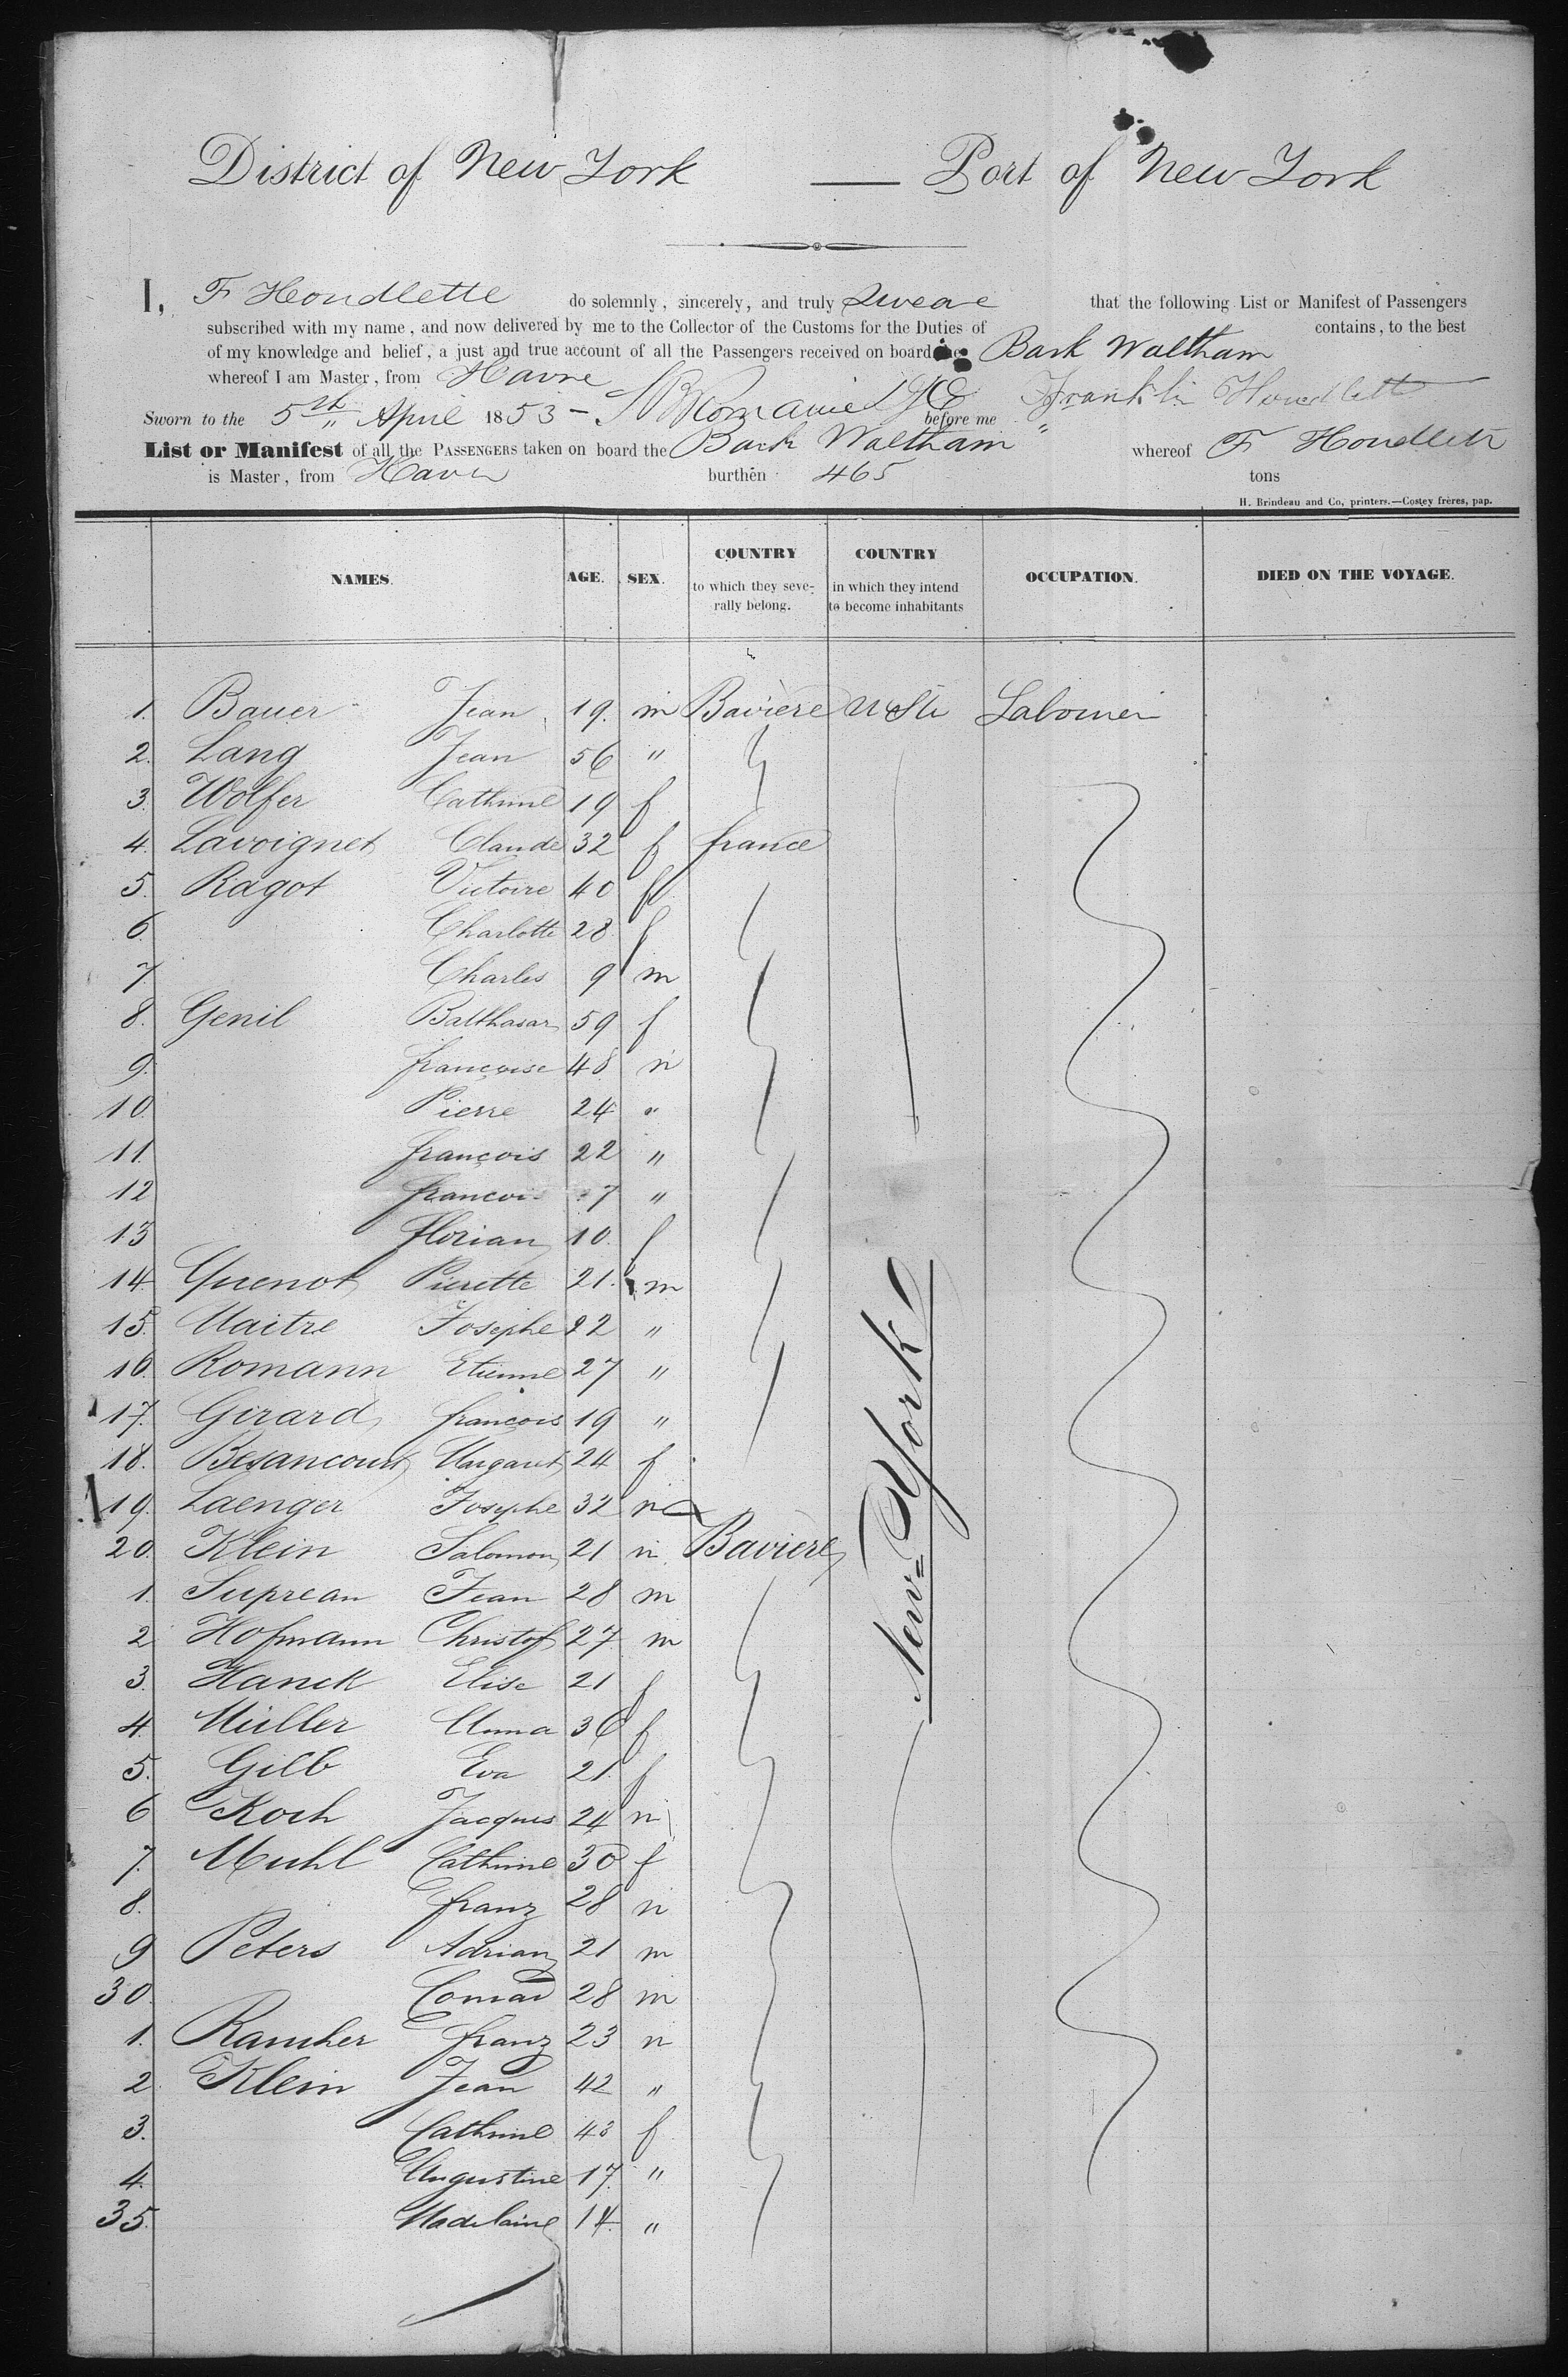 District of New York — Port of New York
I, F Houdlette do solemnly, sincerely, and truly swear that the following List or Manifest of Passengers
subscribed with my name, and now delivered by me to the Collector of the Customs for the Duties of contains, to the best
of my knowledge and belief, a just and true account of all the Passengers received on board the Bark Waltham
whereof I am Master, from Havre
Sworn to the 5th April 1853 - before me Franklin Houdlett
List or Manifest of all the PASSENGERS taken on board the Bark Waltham whereof F Houdlett
is Master, from Havre burthên 465 tons
H. Brindeau and Co, printers.—Costey frères, pap.
NAMES. AGE. SEX. COUNTRY to which they severally belong. COUNTRY in which they intend to become inhabitants OCCUPATION. DIED ON THE VOYAGE.
1. Bauer Jean 19. m Baviere U Sts Labourer
2. Lang Jean 56 "
3. Wolfer Cathrine 19 f
4. Lavoignet Claude 32 f france
5. Ragot Victoire 40 f
6 Charlotte 28 f
7 Charles 9 m
8. Genil Balthasar 59 f
9. francoise 48 m
10. Pierre 24 "
11. françois 22 "
12 francoi 7 "
13 florian 10 f
14 Quenot Pierette 21. m
15. Maitre Josephe 22 "
16. Romann Etienne 27 "
17. Girard françois 19 "
18. Besancourt Margaret 24 f
19. Laenger Josephe 32 m
20. Klein Salomon 21 m Baviere
New-York
1. Suprean Jean 28 m
2 Hofmann Christof 27 m
3. Hanck Elise 21 f
4. Müller Anna 36 f
5. Gilb Eva 21. f
6 Koch Jacques 24 m
7. Muhl Cathrine 30 f
8. franz 28 m
9 Peters Adrian 21 m
30. Conrad 28 m
1. Rancher franz 23 m
2 Klein Jean 42 "
3. Cathrine 43 f
4. Augustine 17. "
35. Madelaine 14. "